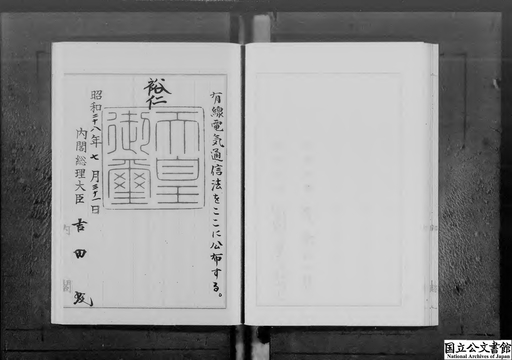 有線電気通信法をここに公布する。
裕仁
天皇御璽
昭和二十八年七月三十一日
内閣総理大臣 吉田茂
国立公文書館
National Archives of Japan